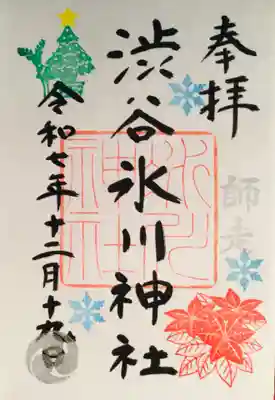 奉拝
師走
渋谷氷川神社
令和七年十二月十九日